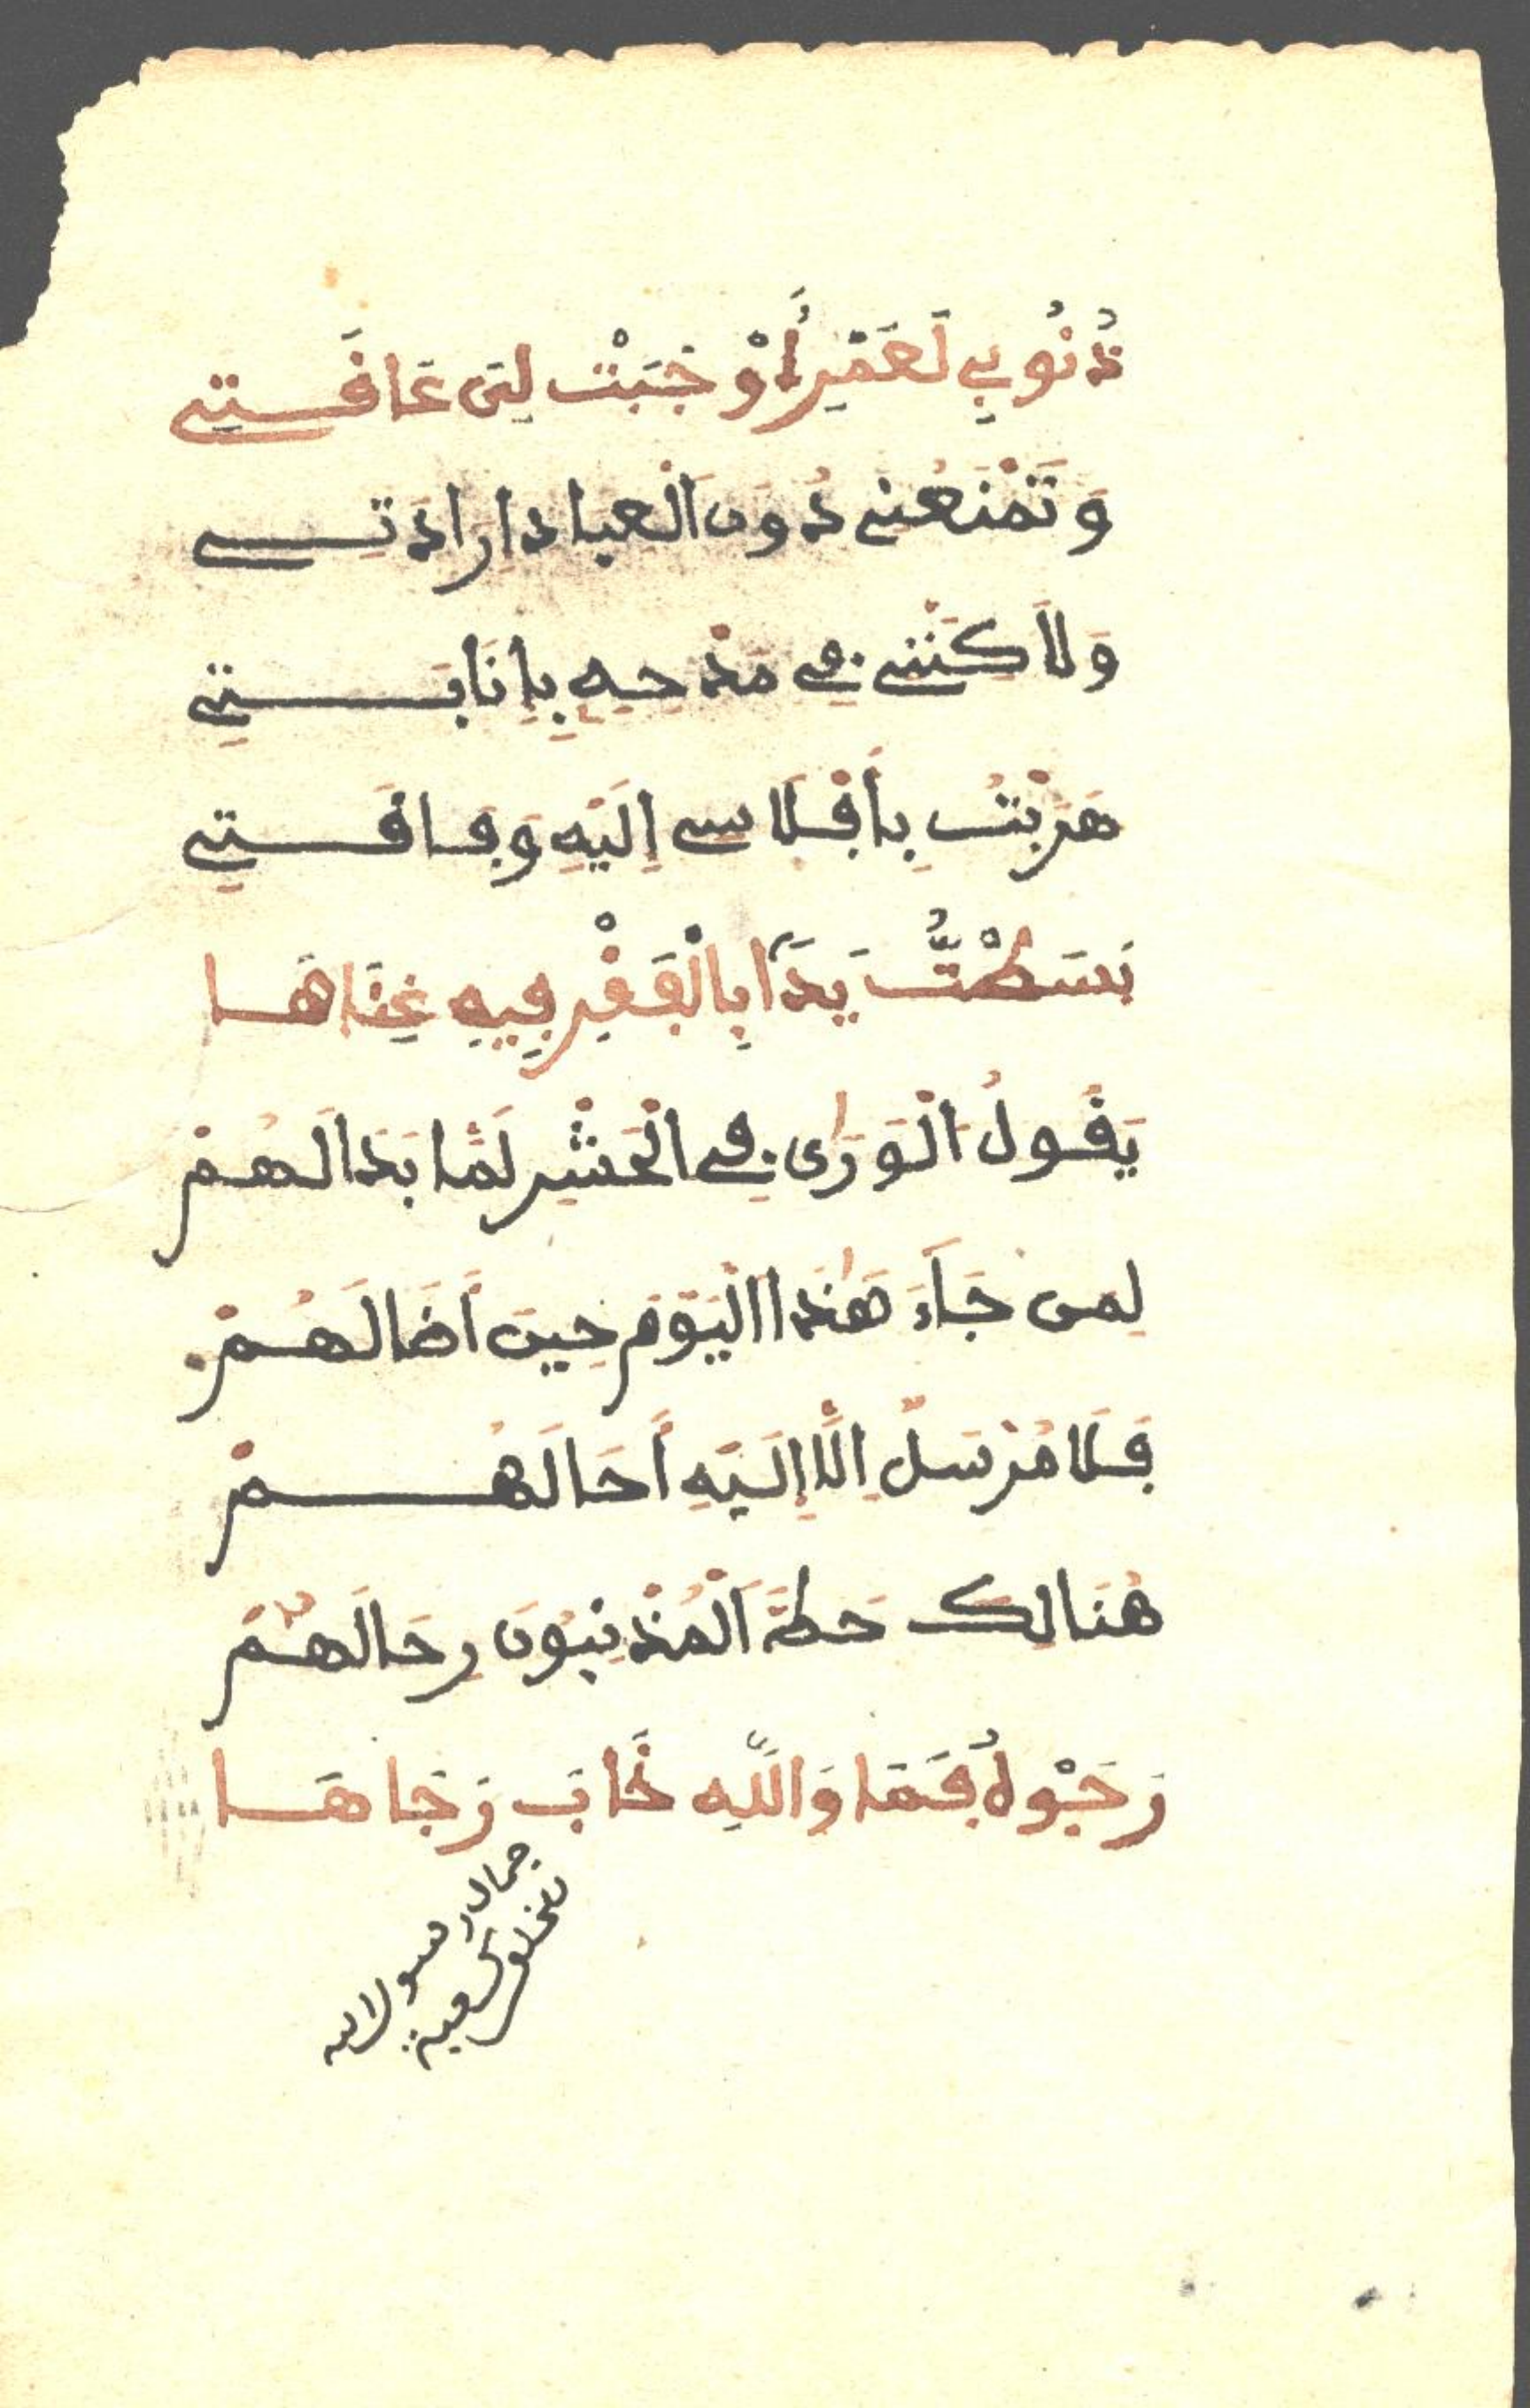 ذُنُوبِي لَعَمْرِي أَوْجَبَتْ لِي عَافَتِي
وَتَمْنَعُنِي دُونَ الْعِبَادِ إِرَادَتِي
وَلَاكِنَّنِي فِي مَدْحِهِ بِإِنَابَتِي
هَرَبْتُ بِأَفْلَاسِي إِلَيْهِ وَفَاقَتِي
بَسَطْتُ يَدًا بِالْفَقْرِ فِيهِ غِنَاهَا
يَقُولُ الْوَرَى فِي الْحَشْرِ لَمَّا بَدَا لَهُمْ
لِمَن جَآءَ هَٰذَا الْيَوْمَ حِينَ أَضَا لَهُمْ
فَلَا مُرْسَلٌ إِلَّا إِلَيْهِ أَحَالَهُمْ
هُنَالِكَ حَطَّ الْمُذْنِبُونَ رِحَالَهُمْ
رَجَوْهُ فَمَا وَاللَّهِ خَابَ رَجَاهَا
جمال رسول الله